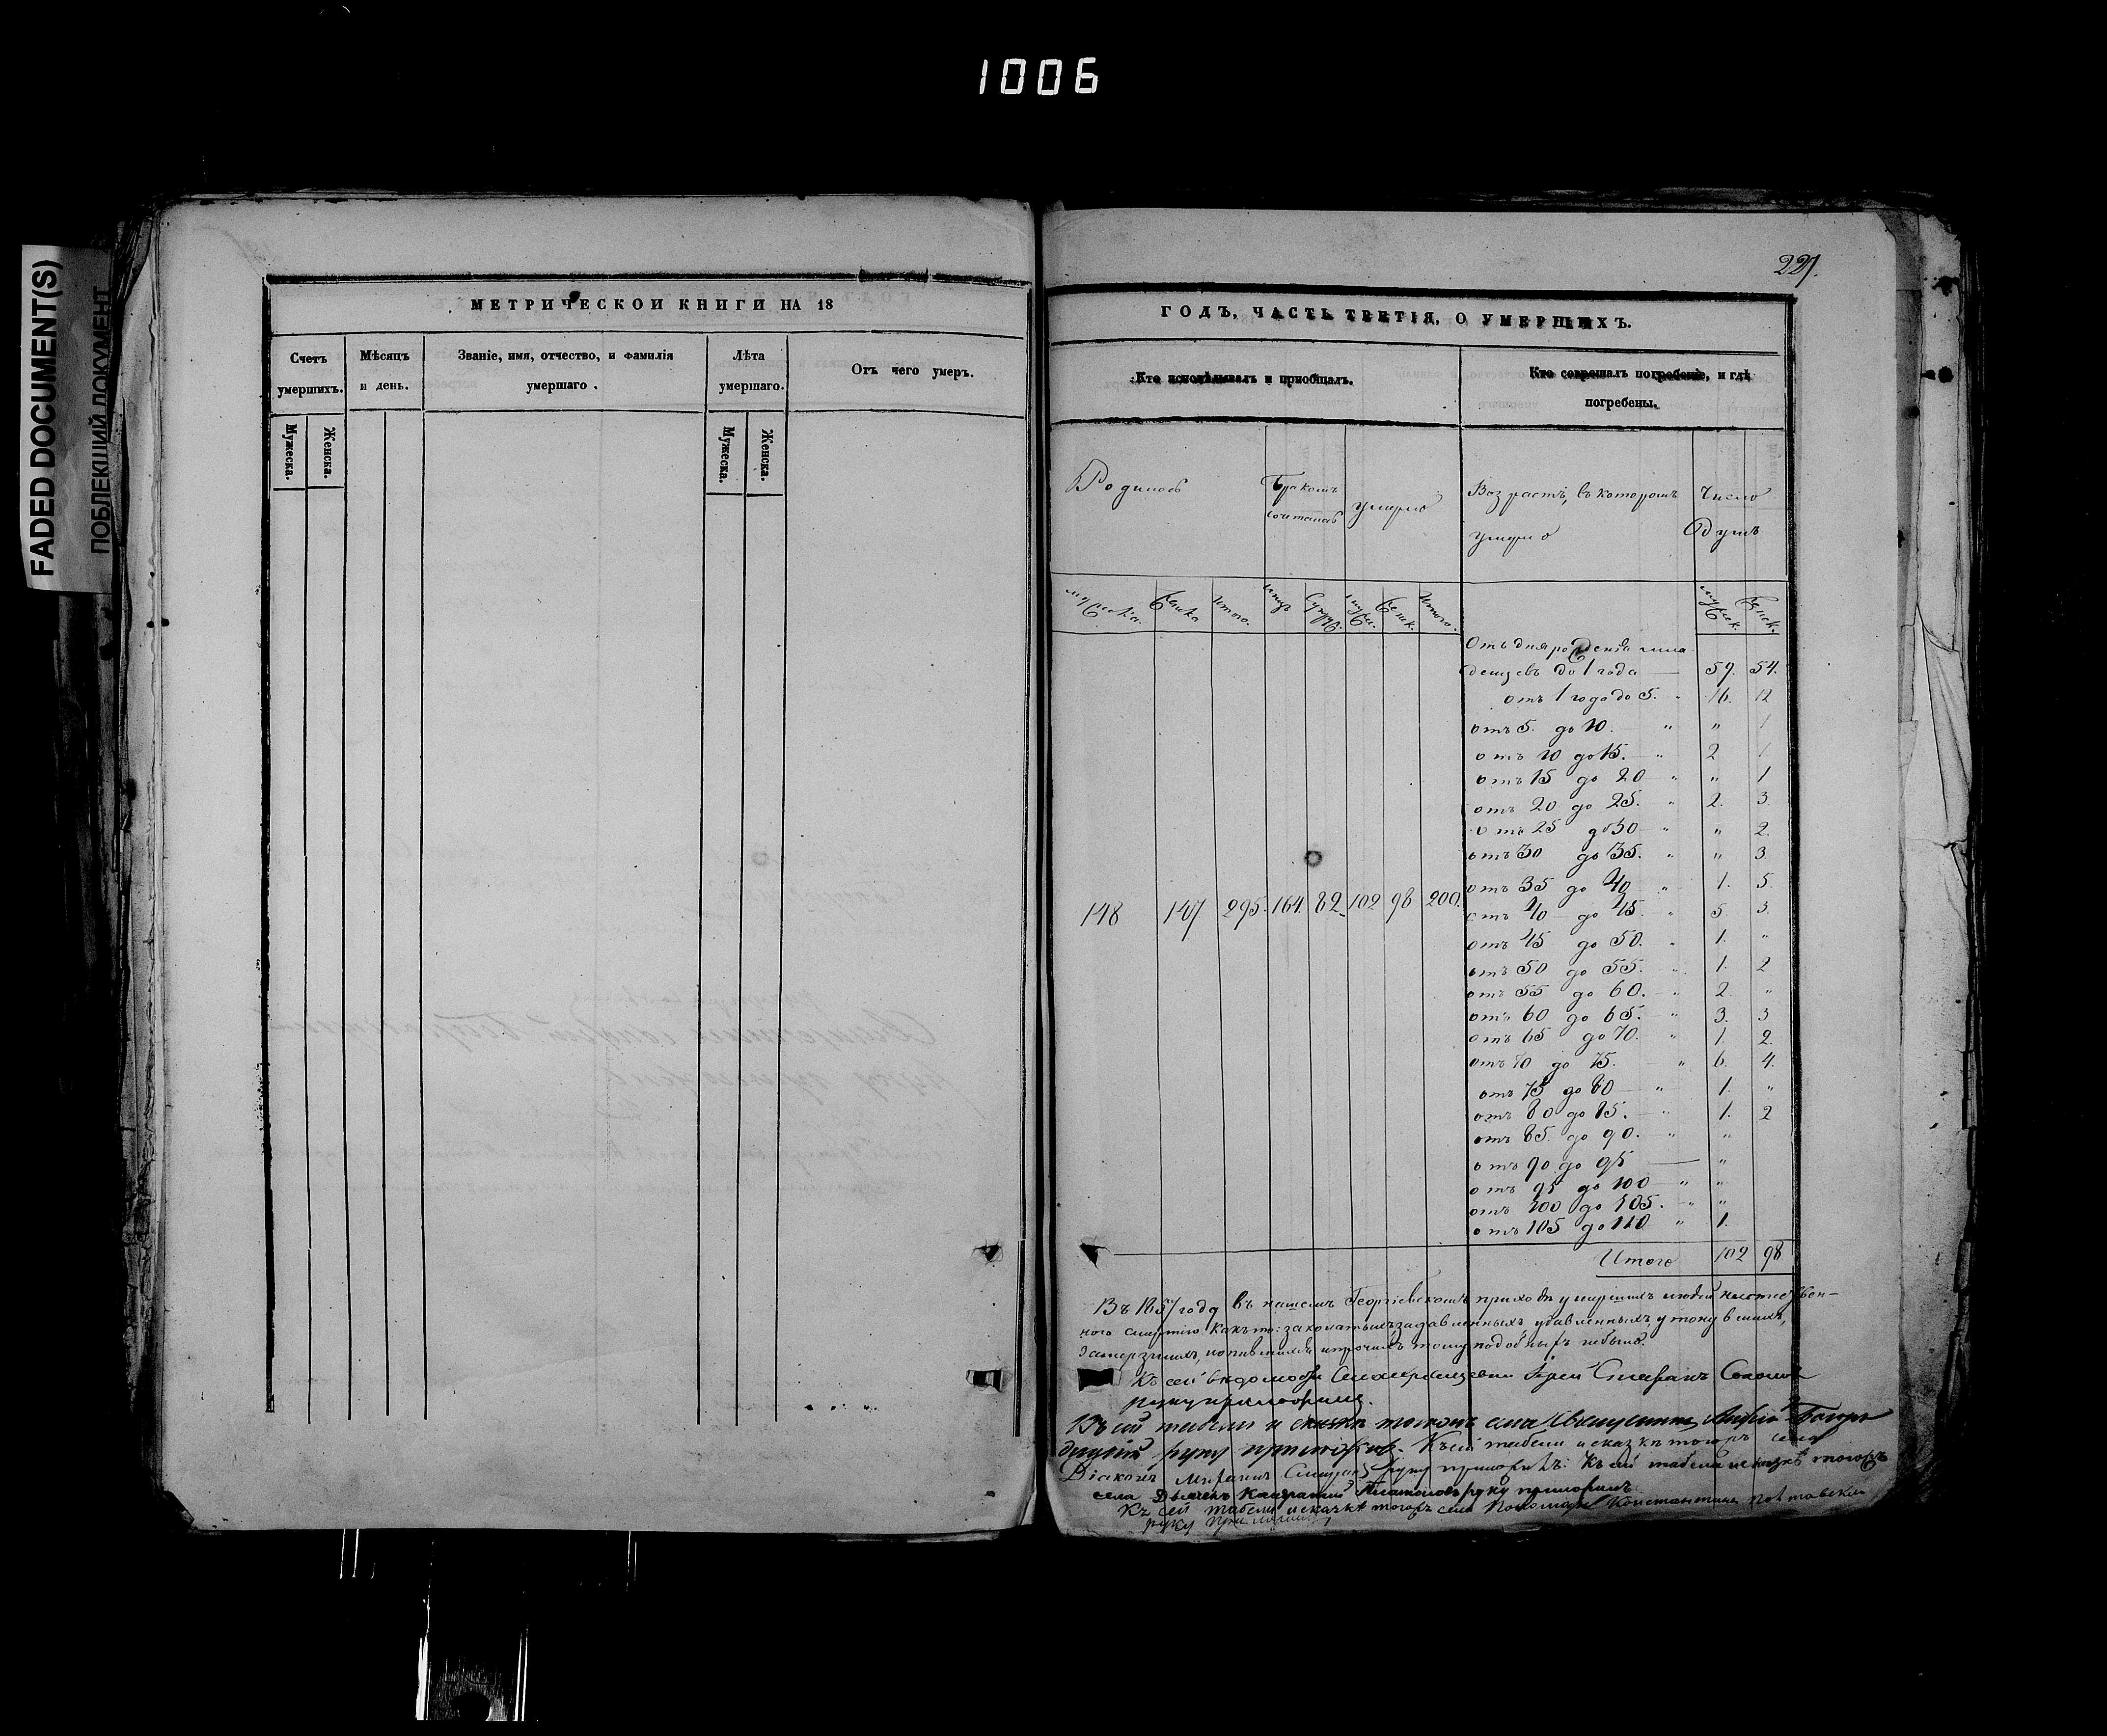 1006
FADED DOCUMENT(S)
ПОБЛЕКШИЙ ДОКУМЕНТ
МЕТРИЧЕСКОИ КНИГИ НА 18
Счетъ умершихъ.
Мѣсяцъ и день.
Званіе, имя, отчество, и фамилія умершаго.
Лѣта умершаго.
Отъ чего умеръ.
Мужеска.
Женска.
Мужеска.
Женска.
227.
ГОДЪ, ЧАСТЬ ТРЕТІЯ, О УМЕРШИХЪ.
Кто исповѣдывалъ и пріобщалъ.
Кто совершалъ погребеніе, и гдѣ
погребены.
Родилось
Бракомъ сочеталось
умерло
Возрастъ, въ которомъ умерло
Число душъ
мужеска. женска итого. лицъ супруж. мужеск. женск. итого.
мужск. женск.
Отъ дня рожденія мла
денцевъ до 1 года 57. 54.
отъ 1 года до 5. " 16. 12
отъ 5. до 10. " " 1
отъ 10 до 15. " 2 1
отъ 15 до 20 " " 1
отъ 20 до 25. " 2. 3.
отъ 25 до 30 " " 2.
отъ 30 до 35. " " 3
отъ 35 до 40 " 1. 5.
148 147 295. 164. 82. 102 98 200.
отъ 40 до 45. " 5. 3.
отъ 45 до 50. " 1. "
отъ 50 до 55. " 1. 2
отъ 55 до 60. " 2. "
отъ 60 до 65. " 3. 3
отъ 65 до 70. " 1. 2.
отъ 70 до 75. " 6. 4.
отъ 75 до 80 " 1. "
отъ 80 до 85. " 1. 2
отъ 85. до 90. " "
отъ 90 до 95 "
отъ 95 до 100 " "
отъ 100 до 105. " "
отъ 105 до 110 " 1.
Итого 102 98
Въ 1857 году въ нашемъ Георгіевскомъ приходѣ умершихъ людей неестествен-
ного смертію какъ то: заколатыхъ задавленныхъ удавленныхъ, утонувшихъ,
Замерзшихъ, и прочихъ тому подобныхъ небыло.
Къ сей вѣдомости Іерей Стефанъ
руку приложилъ.
Къ сей табели и сказкѣ тогожъ села Священникъ Андрей
руку приложилъ. Къ сей табели и сказкѣ тогожъ села
Діаконъ руку приложилъ. Къ сей табели и сказкѣ тогожъ
села Дьячекъ Платоновъ руку приложилъ.
Къ сей табели и сказкѣ тогожъ села Пономарь Константинъ
руку приложилъ